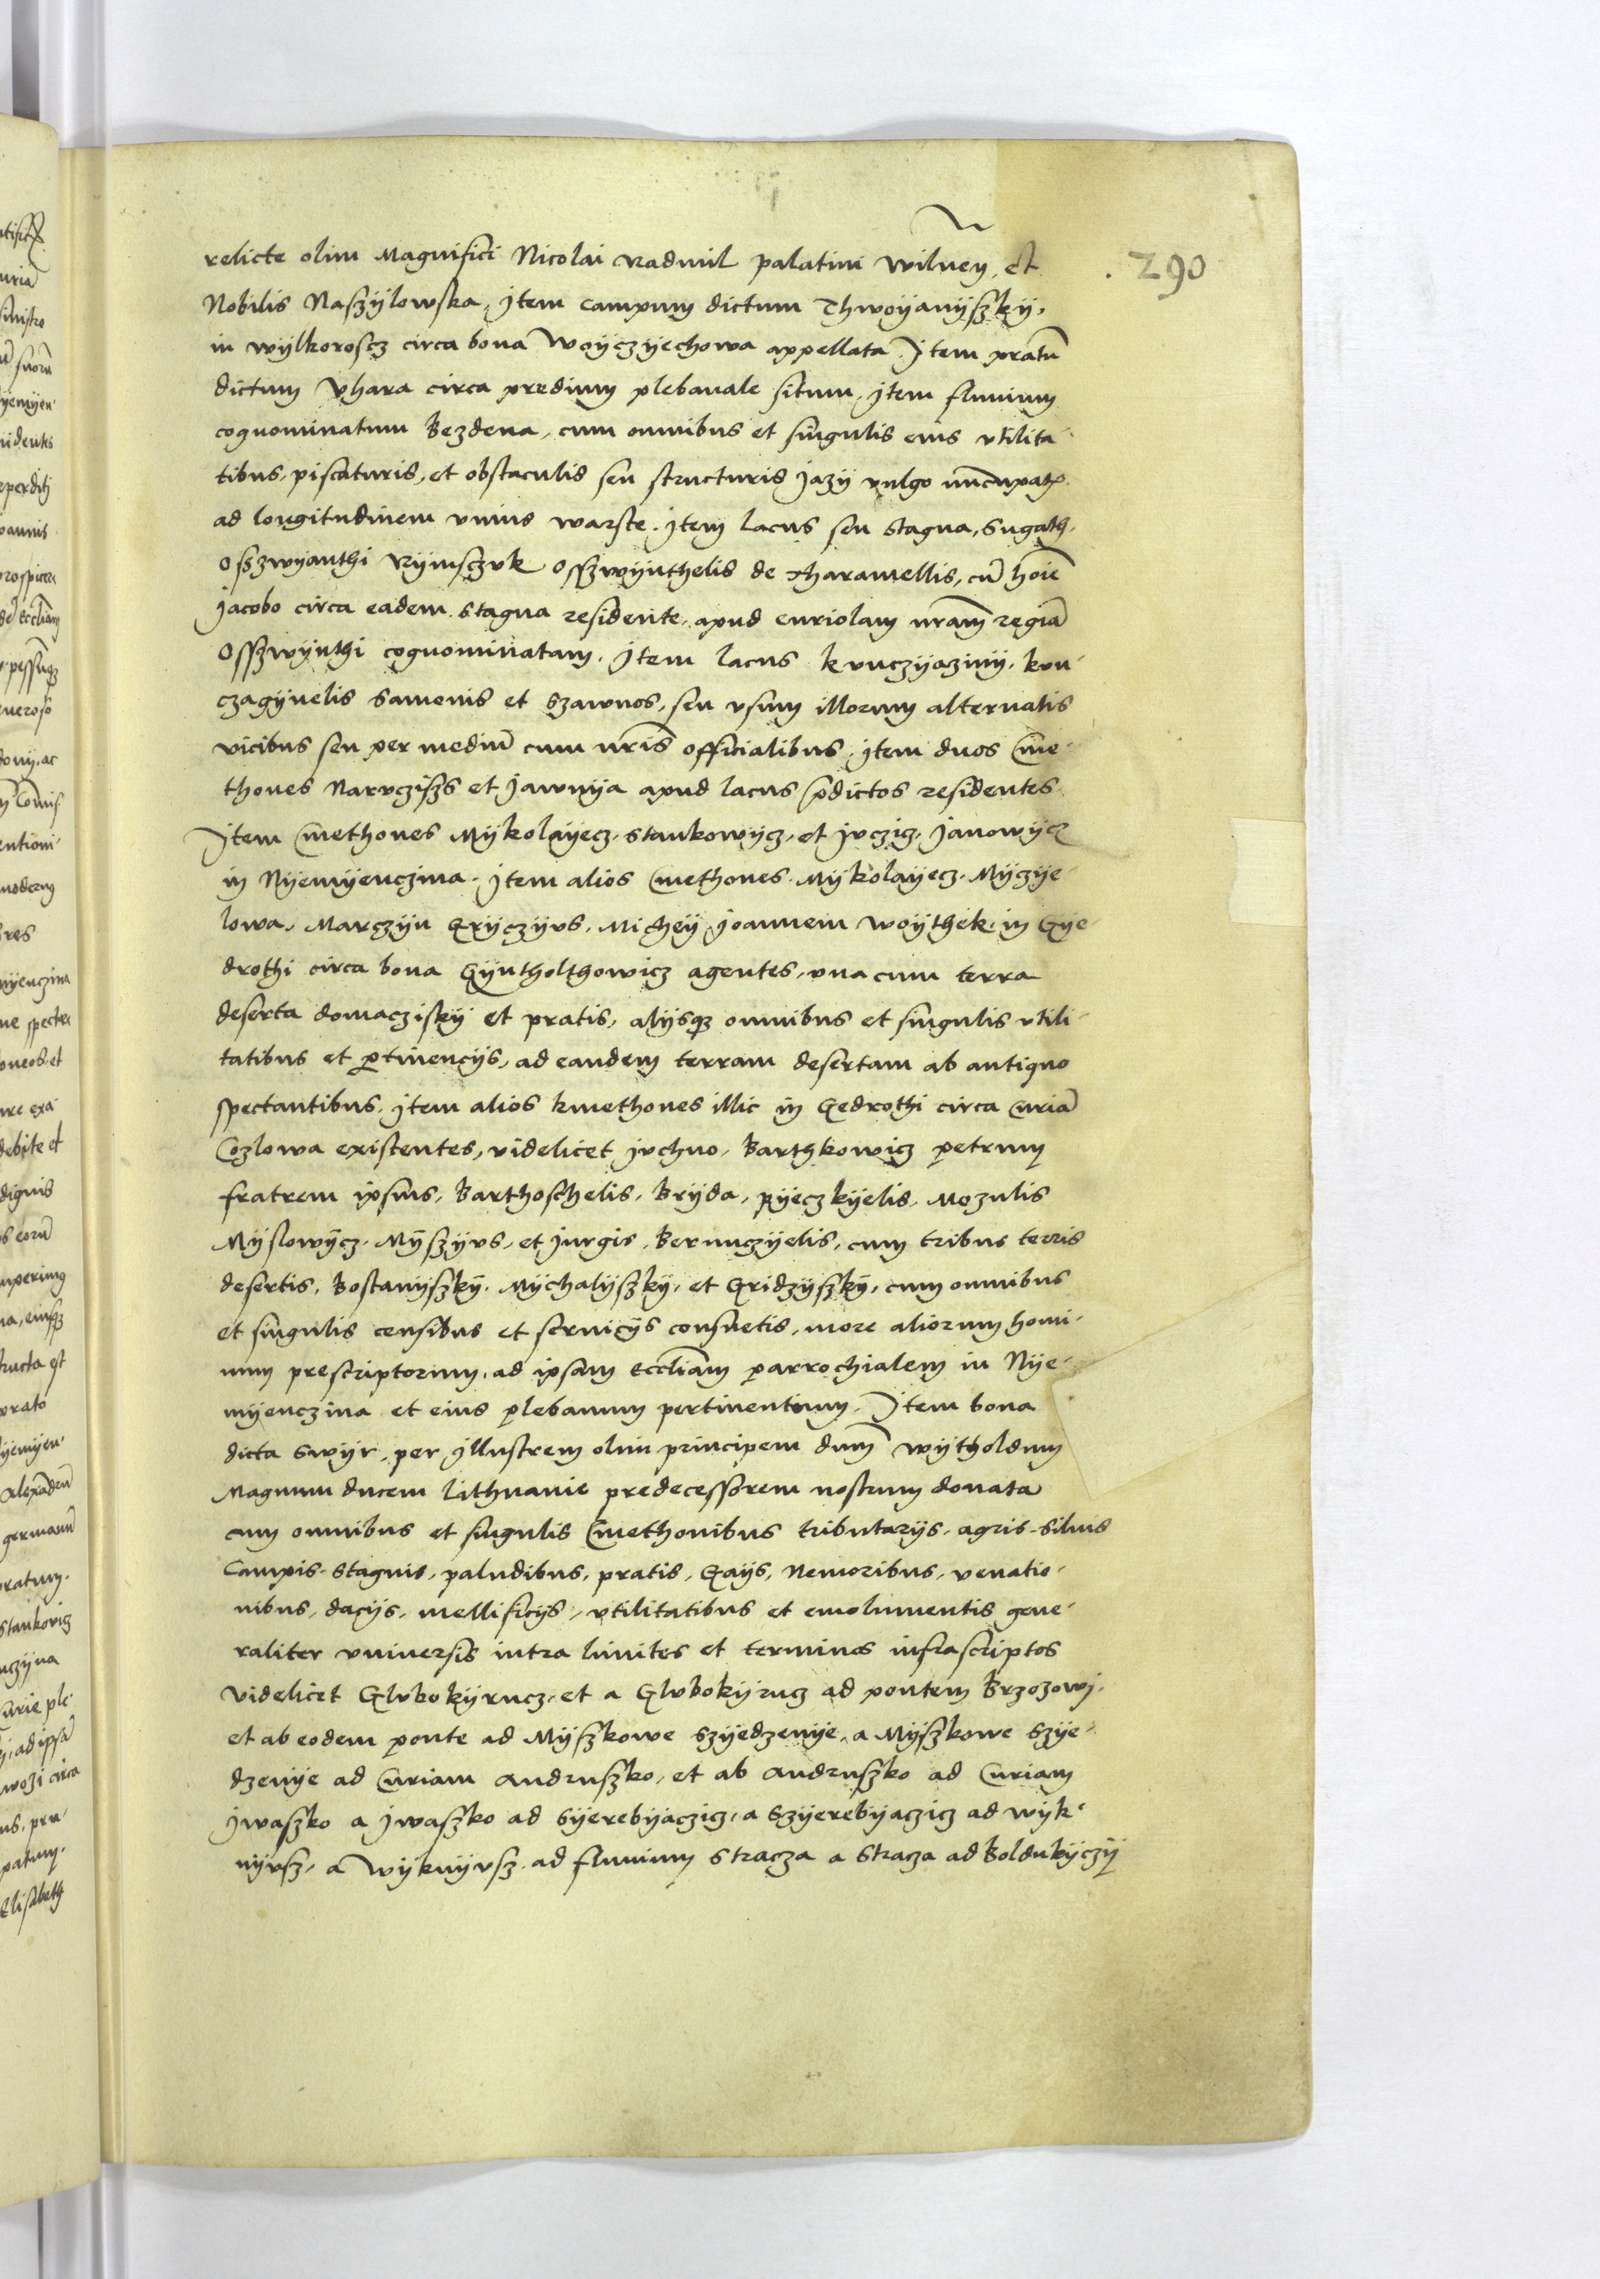 290
relicte olim Magnifici Nicolai Radwil palatini Wilnen, et
Nobilis Naszylowska, Item campum dictum Thwoyanyszky,
in Wylkoroscz circa bona Woyczyechowa appellata. Item pratū
dictum Vhara circa predium plebanale situm, Item fluuium
cognominatum Bezdena, cum omnibus et singulis eius vtilita-
tibus, piscaturis, et obstaculis seu structuris jazy vulgo nūcupat
ad longitudinem vnius warste. Item lacus seu stagna, Sugath,
Oszwyanthi Rymsczuk Osszwynthelis de Tharamellis, cū hoīe
Jacobo circa eadem stagna residente, apud curiolam nrām regiā
Osszwynthi cognominatam. Item lacus Kunczyaziny, Kun-
czagynelis Samenis et Szawnos, seu vsum illorum alternatis
vicibus seu per mediū cum nrīs officialibus, Item duos Cme-
thones Narvcziss et Jawnya apud lacus p̄dictos residentes
Item Cmethones Mykolayecz, Stankowycz, et Juczicz, Janowycz
in Nyemyenczina. Item alios Cmethones Mykolayecz, Myczye-
lowa, Marczyn Gryczyvs, Michey Joannem Woythek, in Gye-
drothi circa bona Gyntholthowicz agentes, vna cum terra
deserta domaczisky et pratis, alijsqz omnibus et singulis vtili-
tatibus et ptinencijs, ad eandem terram desertam ab antiquo
spectantibus, Item alios kmethones illic in Gedrothi circa Curiā
Cozlowa existentes, videlicet Juchno, Barthkowicz petrum
fratrem ipsius, Barthoschelis, Bryda, Pyeczkyelis, Mozulis
Myslowycz, Myszyvs, et Jurgis, Berunczyelis, cum tribus terris
desertis, Bostanyszky, Mychalyszky, et Gridzyszky, cum omnibus
et singulis censibus et seruicijs consuetis, more aliorum homi-
num prescriptorum, ad ipsam eccliam parrochialem in Nye-
myenczina et eius plebanum pertinentium, Item bona
dicta Swyr, per Illustrem olim principem dnm̄ Wytholdum
Magnum ducem Lithuanie predecessorem nostrum donata
cum omnibus et singulis Cmethonibus tributarijs, agris, siluis
Campis, stagnis, paludibus, pratis, Gaijs, Nemoribus, venatio-
nibus, dacijs, mellificijs, vtilitatibus et emolumentis gene-
raliter vniuersis intra limites et terminos infrascriptos
videlicet Glvbokyrucz, et a Glvbokyrucz ad pontem Brzozowj,
et ab eodem ponte ad Myszkowe Szyedzenye, a Myszkowe Szye-
dzenye ad Curiam Andruszko, et ab Andruszko ad Curiam
Jwaszko a Jwaszko ad Syerebyaczicz, a Szyerebyaczicz ad Wyk-
nyusz, a Wyknyusz, ad fluuium Stracza a Stracza ad Boldukyczy